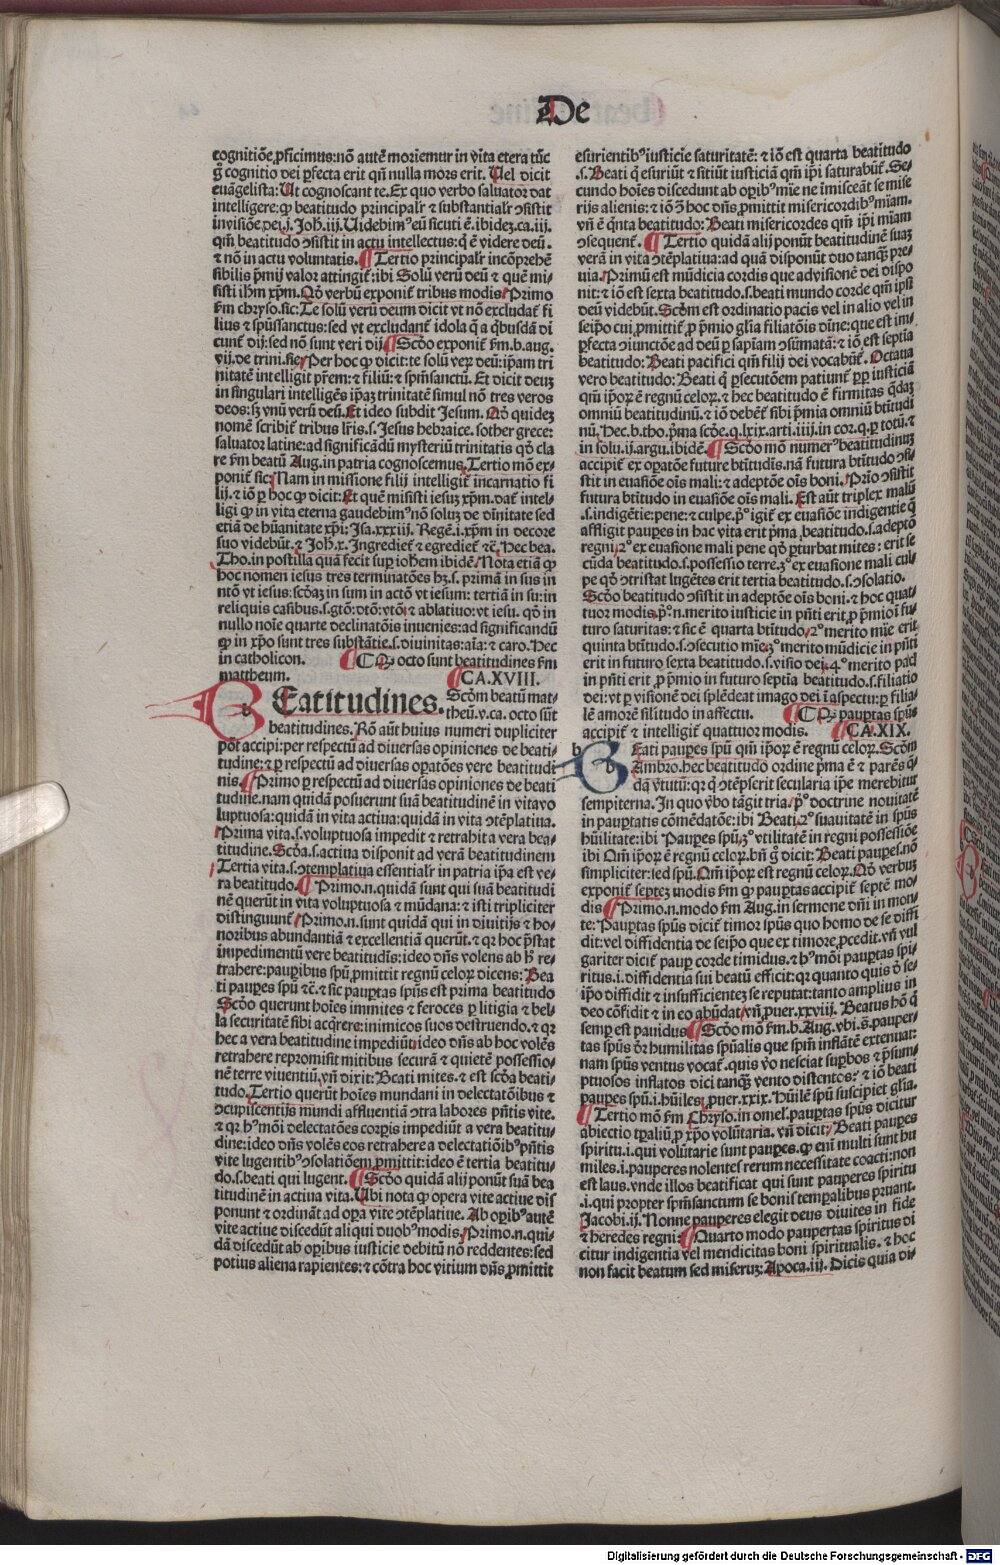 De
cognitiōe ꝓficimus: nō autē moriemur in vita etera tūc
g̊ cognitio dei ꝑfecta erit qn̄ nulla mors erit. Uel dicit
euāgelista: Ut cognoscant te. Ex quo verbo saluator dat
intelligere: ꝙ beatitudo principalr̄ ⁊ substantialr̄ ↄsistit
in visiōe dei. j. Joh. iij. Uidebimꝰ eū sicuti ē. ibidez. ca. iij.
qm̄ beatitudo ↄsistit in actu intellectus: q̄ ē videre deū.
⁊ nō in actu voluntatis. ¶ Tertio principalr̄ incōprehē
sibilis p̄mij valor attingit᷑: ibi Solū verū deū ⁊ quē mi-
sisti ihm̄ xp̄m. Qd̓ verbū exponit᷑ tribus modis. Primo
ẜm chryso. sic: Te solū verū deum dicit vt nō excludat᷑ fi
lius ⁊ spūssanctus: sed vt excludant᷑ idola q̄ a q̇busdā di
cunt᷑ dij: sed nō sunt veri dij ¶ Scd̓o exponit᷑ ẜm. b. aug.
vij. de trini. sic. Per hoc ꝙ dicit: te solū veꝝ deū: ip̄am tri
nitatē intelligit pr̄em: ⁊ filiū: ⁊ spm̄sanctū. Et dicit deuz
in singulari intelligēs ip̄aꝫ trinitatē simul nō tres veros
deos: sꝫ vnū verū deū. Et ideo subdit Jesum. Qd̓ quidez
nomē scribit᷑ tribus lr̄is. s. Jesus hebraice. sother grece:
saluator latine: ad significādū mysteriū trinitatis qd̓ cla
re ẜm beatū Aug. in patria cognoscemus. Tertio mō ex-
ponit᷑ sic: Nam in missione filij intelligit᷑ incarnatio fi
lij. ⁊ iō ꝑ hoc ꝙ dicit: Et quē misisti iesuꝫ xp̄m. dat᷑ intel-
ligi ꝙ in vita eterna gaudebimꝰ nō soluꝫ de diuinitate sed
etiā de hūanitate xp̄i: Isa. xxxiij. Regē. i. xp̄m in decore
suo videbūt. ⁊ Joh. x. Ingrediet᷑ ⁊ egrediet᷑ ⁊c̄. Hec bea.
Tho. in postilla quā fecit suꝑ ioh̄em ibidē. Nota etiā ꝙ
hoc nomen iesus tres terminatōes hꝫ. s. primā in sus in
ntō vt iesus: scd̓aꝫ in sum in actō vt iesum: tertiā in su: in
reliquis casibus. s. gtō: dtō: vtō: ⁊ ablatiuo: vt iesu. qd̓ in
nullo noīe quarte declinatōis inuenies: ad significandū
ꝙ in xp̄o sunt tres substātie. s. diuinitas: aīa: ⁊ caro. Hec
in catholicon. ¶ CꝘ octo sunt beatitudines ẜm
mattheum. ¶ CA. XVIII.
BEatitudines. Scd̓m beatū mat-
theū. v. ca. octo sūt
beatitudines. Rō aūt huius numeri dupliciter
pōt accipi: per respectū ad diuersas opiniones de beati-
tudine: ⁊ ꝑ respectū ad diuersas oꝑatōes vere beatitudi-
nis. ¶ Primo ꝑ respectū ad diuersas opiniones de beati
tudine. nam quidā posuerunt suā beatitudinē in vita vo
luptuosa: quidā in vita actiua: quidā in vita ↄtēplatiua.
Prima vita. s. voluptuosa impedit ⁊ retrahit a vera bea-
titudine. Scd̓a. s. actiua disponit ad verā beatitudinem
Tertia vita. s. ↄtemplatiua essentialr̄ in patria ip̄a est ve-
ra beatitudo. ¶ Primo. n. quidā sunt qui suā beatitudi
nē querūt in vita voluptuosa ⁊ mūdana: ⁊ isti tripliciter
distinguunt᷑. Primo. n. sunt quidā qui in diuitijs ⁊ ho-
noribus abundantiā ⁊ excellentiā querūt. ⁊ qꝛ hoc p̄stat
impedimentū vere beatitudīs: ideo dn̄s volens ab h̄ re-
trahere: pauꝑibus spū ꝓmittit regnū celoꝝ dicens: Bea
ti pauꝑes spū ⁊c̄. ⁊ sic pauꝑtas spūs est prima beatitudo
Scd̓o querunt hoīes immites ⁊ feroces ꝑ litigia ⁊ bel-
la securitatē sibi acq̇rere: inimicos suos destruendo. ⁊ qꝛ
hec a vera beatitudine impediūt. ideo dn̄s ab hoc volēs
retrahere repromisit mitibus securā ⁊ quietē possessio-
nē terre viuentiū, vn̄ dixit: Beati mites. ⁊ est scd̓a beati-
tudo. Tertio querūt hoīes mundani in delectatōibus ⁊
ↄcupiscentijs mundi affluentiā ↄtra labores p̄ntis vite.
⁊ qꝛ hmōi delectatōes corꝑis impediūt a vera beatitu-
dine: ideo dn̄s volēs eos retrahere a delectatiōibꝰ p̄ntis
vite lugentibꝰ ↄsolatiōem ꝓmittit: ideo ē tertia beatitu-
do. s. beati qui lugent. ¶ Scd̓o quidā alij ponūt suā bea
titudinē in actiua vita. Ubi nota ꝙ opera vite actiue dis
ponunt ⁊ ordināt ad oꝑa vite ↄtēplatiue. Ab oꝑibꝰ autē
vite actiue discedūt aliqui duobꝰ modis. Primo. n. qui-
dā discedūt ab oꝑibus iusticie debitū nō reddentes: sed
potius aliena rapientes: ⁊ cōtra hoc vitium dn̄s ꝓmittit
esurientibꝰ iusticie saturitatē: ⁊ iō est quarta beatitudo
.s. Beati q̇ esuriūt ⁊ sitiūt iusticiā qm̄ ip̄i saturabūt᷑. Se-
cundo hoīes discedunt ab oꝑibꝰ mīe ne īmisceāt se mise
rijs alienis: ⁊ iō ↄ̄ hoc dn̄s ꝓmittit misericordibꝰ mīam.
vn̄ ē q̇nta beatitudo: Beati misericordes qm̄ ip̄i mīam
ↄsequent᷑. ¶ Tertio quidā alij ponūt beatitudinē suaꝫ
verā in vita ↄtēplatiua: ad quā disponūt duo tanq̄ꝫ pre-
uia. Primū est mūdicia cordis que ad visionē dei dispo
nit: ⁊ iō est sexta beatitudo. s. beati mundo corde qm̄ ip̄i
deū videbūt. Scd̓m est ordinatio pacis vel in alio vel in
seip̄o cui ꝓmittit᷑ ꝓ p̄mio gl̄ia filiatōis diuīe: que est im-
ꝑfecta ↄiunctōe ad deū ꝑ sapīam ↄsūmatā: ⁊ iō est septīa
beatitudo: Beati pacifici qm̄ filij dei vocabūt᷑. Octaua
vero beatitudo: Beati q̇ ꝑsecutōem patiunt᷑ ꝓpꝉ iusticiā
qm̄ ip̄oꝝ ē regnū celoꝝ. ⁊ hec beatitudo ē firmitas q̄dā
omniū beatitudinū. ⁊ iō debēt᷑ sibi p̄mia omniū btītudi
nū. Hec. b. tho. p̄ma scd̓e. q. lxix. arti. iiij. in cor. q. ꝑ totū. ⁊
in solu. ij. argu. ibidē. ¶ Scd̓o mō numerꝰ beatitudinuꝫ
accipit᷑ ex oꝑatōe future btītudīs. nā futura btītudo ↄsi-
stit in euasiōe oīs mali: ⁊ adeptōe oīs boni. Prīo ↄsistit
futura btītudo in euasiōe oīs mali. Est aūt triplex malū
.s. indigētie: pene: ⁊ culpe. pͦ igit᷑ ex euasiōe indigentie q̄
affligit pauꝑes in hac vita erit p̄ma beatitudo. s. adeptō
regni. 2ͦ ex euasione mali pene qd̓ ꝑturbat mites: erit se
cūda beatitudo. s. possessio terre. 3ͦ ex euasiōe mali cul-
pe qd̓ ↄtristat lugētes erit tertia beatitudo. s. ↄsolatio.
Scd̓o beatitudo ↄsistit in adeptōe oīs boni. ⁊ hoc quat-
tuor modis. pͦ. n. merito iusticie in p̄nti erit ꝓ p̄mio ī fu-
turo saturitas: ⁊ sic ē quarta btītudo. 2ͦ merito mīe erit
quinta btītudo: s. ↄsecutio mīe. 3ͦ merito mūdicie in p̄nti
erit in futuro sexta beatitudo. s. visio dei. 4ͦ merito pacis
in p̄nti erit ꝓ p̄mio in futuro septīa beatitudo. s. filiatio
dei: vt ꝑ visionē dei splēdeat imago dei ī aspectu: ꝑ filia-
lē amorē silitudo in affectu. ¶ CꝘ pauꝑtas spūs
accipit᷑ ⁊ intelligit᷑ quattuor modis. ¶ CA. XIX.
BEati pauꝑes spū qm̄ ip̄oꝝ ē regnū celoꝝ. Scd̓m
Ambro. hec beatitudo ordine p̄ma ē ⁊ parēs q̄
dā v̓tutū: qꝛ q̇ ↄtēpserit secularia ip̄e merebitur
sempiterna. In quo v̓bo tāgit tria. pͦ doctrine nouitatē
in pauꝑtatis cōmēdatōe: ibi Beati. 2ͦ suauitatē in spūs
hūilitate: ibi Pauꝑes spū. 3ͦ vtilitatē in regni possessiōe
ibi Qm̄ ip̄oꝝ ē regnū celoꝝ. bn̄ g̊ dicit: Beati pauꝑes. nō
simpliciter: sed spū. Qm̄ ip̄oꝝ est regnū celoꝝ. Qd̓ verbuꝫ
exponit᷑ septeꝫ modis ẜm ꝙ pauꝑtas accipit᷑ septē mo-
dis ¶ Primo. n. modo ẜm Aug. in sermone dn̄i in mon-
te: Pauꝑtas spūs dicit᷑ timor spūs quo homo de se diffi
dit: vel diffidentia de seip̄o que ex timore ꝓcedit. vn̄ vul
gariter dicit᷑ pauꝑ corde timidus. ⁊ hꝰmōi pauꝑtas spi-
ritus. i. diffidentia sui beatū efficit: qꝛ quanto quis d̓ se-
ip̄o diffidit ⁊ insufficientez se reputat: tanto amplius in
deo cōfidit ⁊ in eo abūdat. vn̄ ꝓuer. xxviij. Beatus hō q̇
semꝑ est pauidus ¶ Scd̓o mō ẜm. b. Aug. vbi s̄. pauper-
tas spūs d̓r humilitas spūalis que spm̄ inflatē extenuat:
nam spūs ventus vocat᷑. quis v̓o nesciat suꝑbos ⁊ p̄sum-
ptuosos inflatos dici tanq̄ꝫ vento distentos: ⁊ iō beati
pauꝑes spū. i. hūiles. ꝓuer. xxix. Hūilē spū suscipiet gl̄ia.
¶ Tertio mō ẜm Chryso. in omel. pauꝑtas spūs dicitur
abiectio tꝑaliū ꝓ xp̄o volūtaria. vn̄ dicit: Beati pauꝑes
spiritu: i. qui volūtarie sunt pauꝑes. ꝙ eni multi sunt hu
miles. i. pauperes nolentes rerum necessitate coacti: non
est laus. vnde illos beatificat qui sunt pauperes spiritu
.i. qui propter spm̄sanctum se bonis temꝑalibus priuant.
Jacobi. ij. Nonne pauperes elegit deus diuites in fide
⁊ heredes regni: ¶ Quarto modo paupertas spiritus di
citur indigentia vel mendicitas boni spiritualis. ⁊ hoc
non facit beatum sed miseruꝫ: Apoca. iij. Dicis quia di-
Digitalisierung gefördert durch die Deutsche Forschungsgemeinschaft - DFG